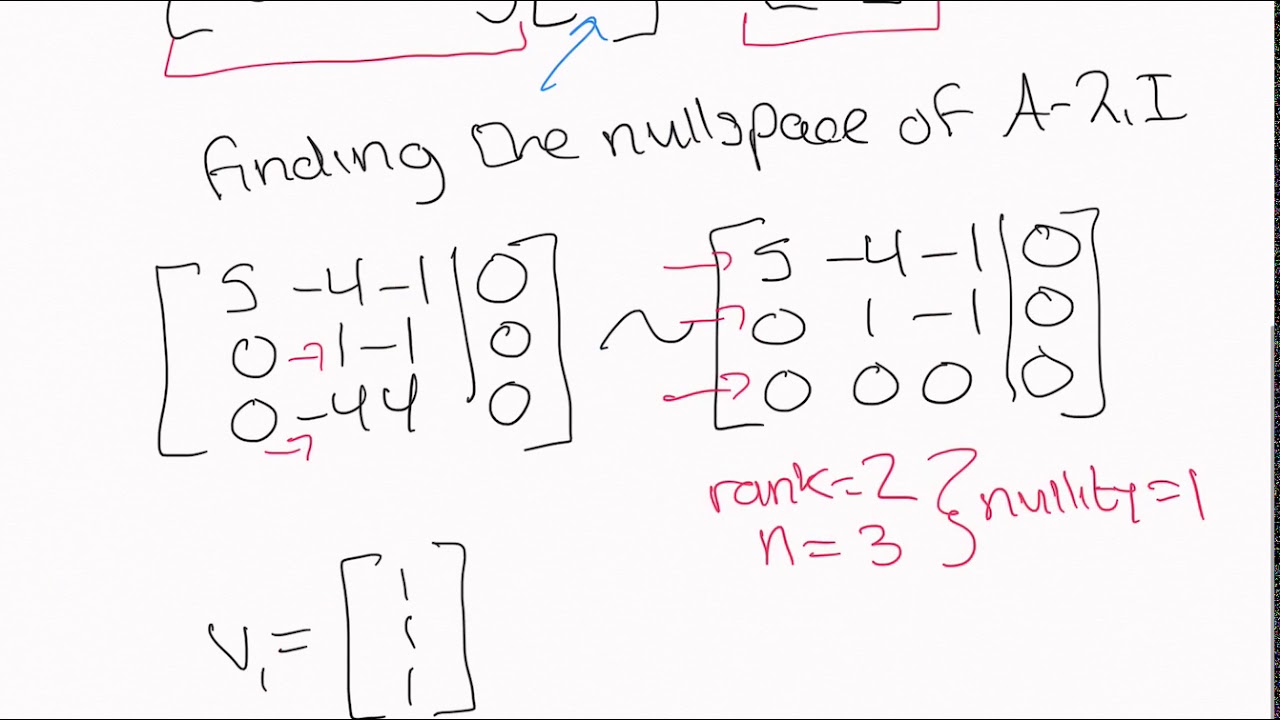 finding the nullspace of A-λ₁I
[ 5 -4 -1 | 0 ] ~ [ 5 -4 -1 | 0 ]
[ 0 1 -1 | 0 ] [ 0 1 -1 | 0 ]
[ 0 -4 4 | 0 ] [ 0 0 0 | 0 ]
rank=2 } nullity=1
n=3
v₁= [ 1
1
1 ]